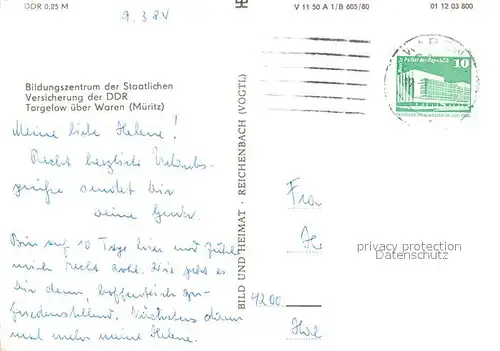 DDR 0,25 M
9.3.84
V 11 50 A 1/B 605/80
01 12 03 800
Bildungszentrum der Staatlichen
Versicherung der DDR
Torgelow über Waren (Müritz)
Meine liebe Helene!
Recht herzliche Urlaubs-
grüße sendet dir
deine
Bin auf 10 Tage hier und fühle
mich recht wohl. Wie geht es
Dir denn, hoffentlich zu-
friedenstellend. Nächstens dann
mal mehr meine Helene.
BILD UND HEIMAT · REICHENBACH (VOGTL)
Palast der Republik
10
DDR
Fra
He
privacy protection
Datenschutz
4200
Hal